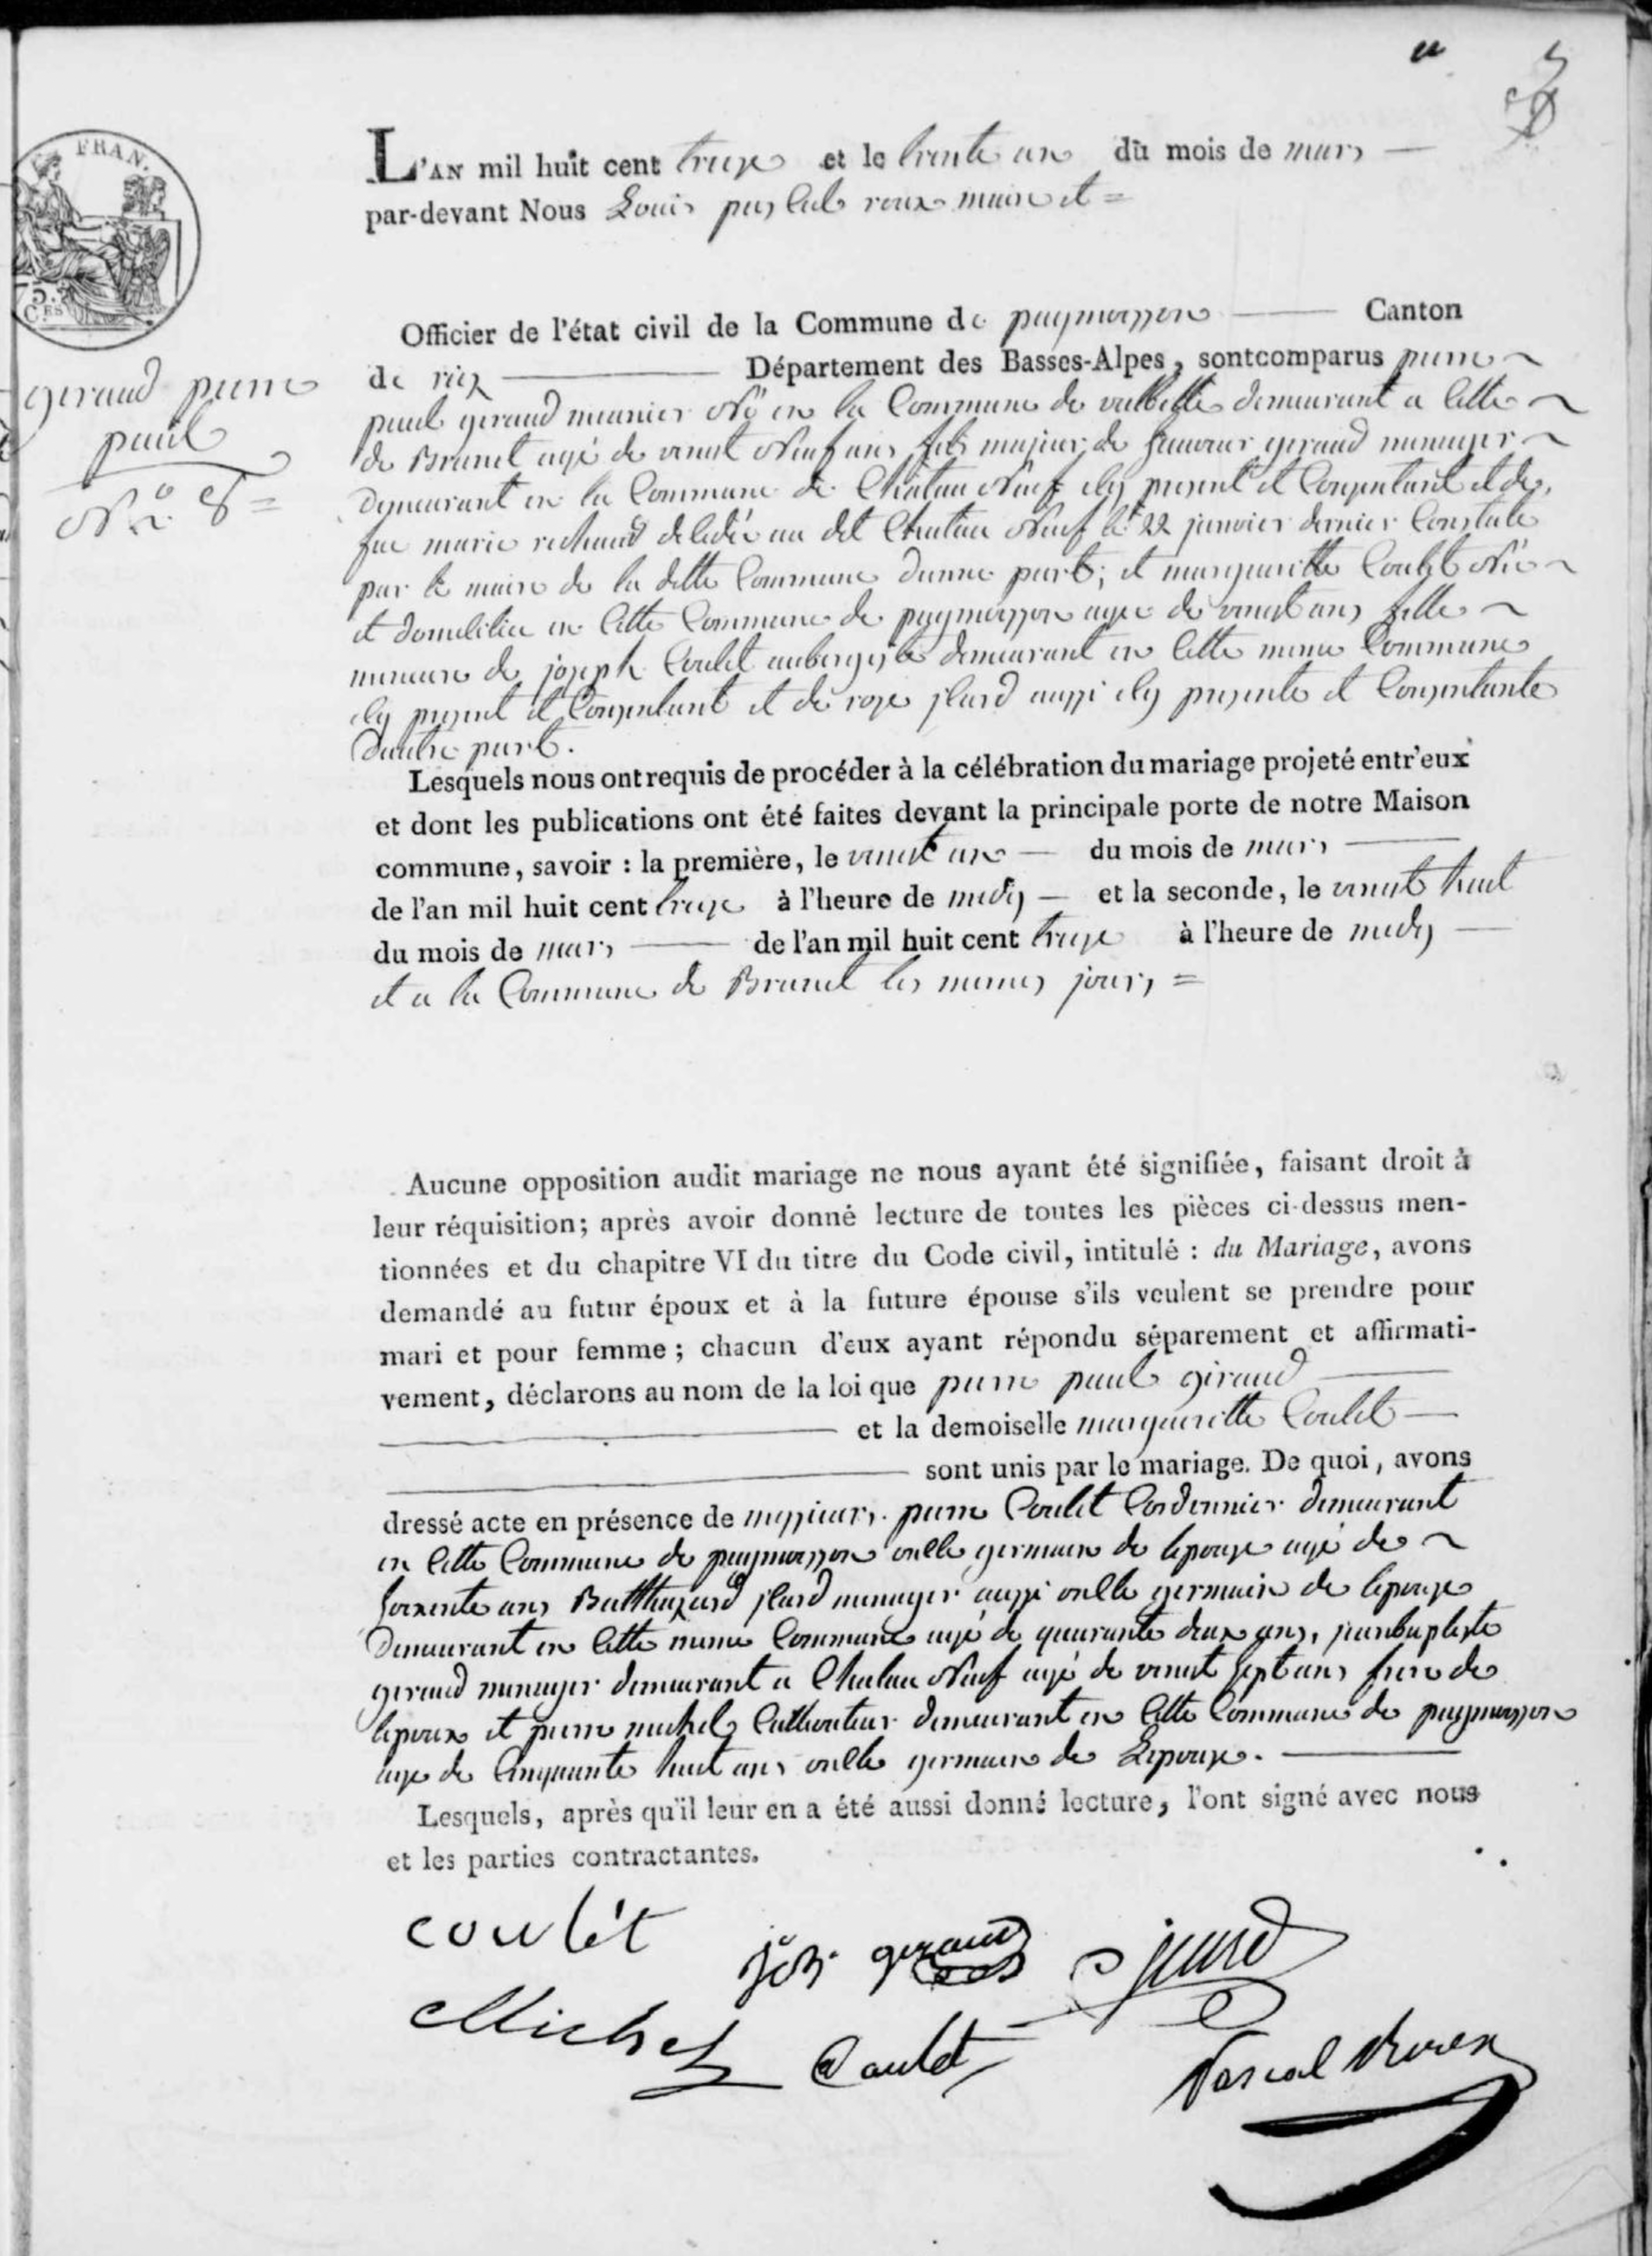 FRAN.
75.
C.ES
L'AN mil huit cent treize et le trente un du mois de mars
par-devant Nous Louis pascal roux maire et =
Officier de l'état civil de la Commune de puymoisson Canton
de riez Département des Basses-Alpes, sontcomparus pierre
giraud pierre
paul
N.° 8 =
paul giraud meunier Né en la Commune de valbelle demeurant a Cette
de Brunet agé de vingt Neuf ans fils majeur de giraud menager
demeurant en la Commune de Chateau Neuf icy present et Consentant et de
feue marie richaud decedée au dit Chateau Neuf le 22 janvier dernier Constaté
par le maire de la ditte Commune dunne part; et margueritte Coulet Née
et domiciliée en Cette Commune de puymoisson agée de vingt ans fille
mineure de joseph Coulet aubergiste demeurant en Cette meme Commune
icy present et Consentant et de rose jlard aussi icy presente et Consentante
dautre part.
Lesquels nous ont requis de procéder à la célébration du mariage projeté entr'eux
et dont les publications ont été faites devant la principale porte de notre Maison
commune, savoir : la première, le vingt un du mois de mars
de l'an mil huit cent treize à l'heure de midy et la seconde, le vingt huit
du mois de mars de l'an mil huit cent treize à l'heure de midy
et a la Commune de Brunet les memes jours =
Aucune opposition audit mariage ne nous ayant été signifiée, faisant droit à
leur réquisition; après avoir donné lecture de toutes les pièces ci-dessus men-
tionnées et du chapitre VI du titre du Code civil, intitulé : du Mariage, avons
demandé au futur époux et à la future épouse s'ils veulent se prendre pour
mari et pour femme ; chacun d'eux ayant répondu séparement et affirmati-
vement, déclarons au nom de la loi que pierre paul giraud
et la demoiselle margueritte Coulet
sont unis par le mariage. De quoi, avons
dressé acte en présence de messieurs pierre Coulet Cordonnier demeurant
en Cette Commune de puymoisson oncle germain de lepouse agé de
soixente ans Balthazard jlard menager aussi oncle germain de lepouse
demeurant en Cette meme Commune agé de quarante deux ans, jeanbaptiste
giraud menager demeurant a Chateau Neuf agé de vingt sept ans frere de
lepoux et pierre michel Cultivateur demeurant en Cette Commune de puymoisson
age de Cinquante huit ans oncle germain de Lepouse.
Lesquels, après qu'il leur en a été aussi donné lecture, l'ont signé avec nous
et les parties contractantes.
coulét
giraud jlard
Michel Coulet Pascal Roux